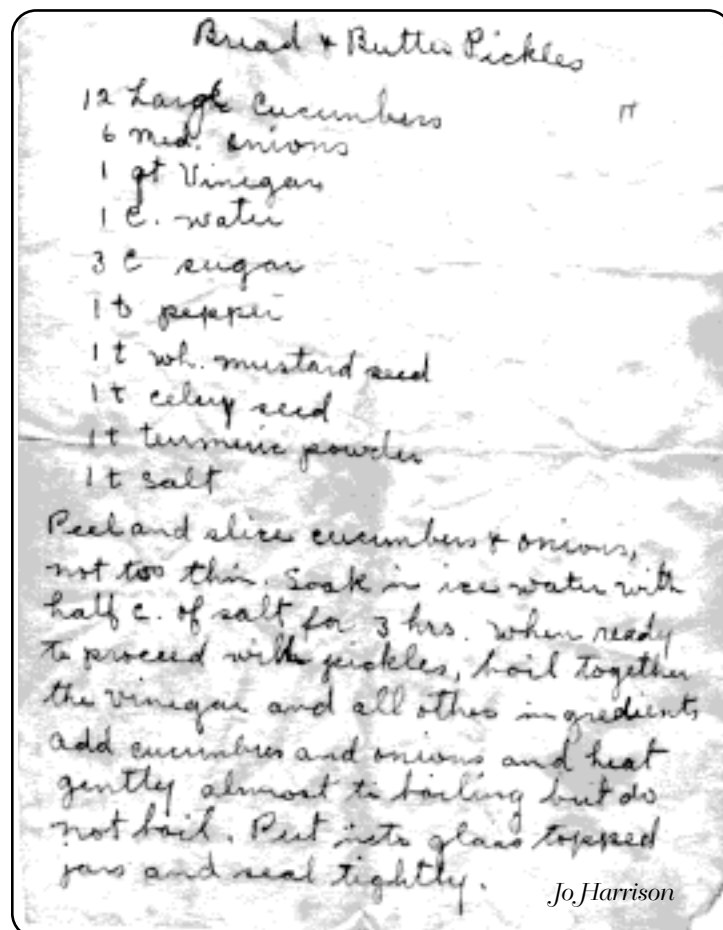 Bread & Butter Pickles
12 Large Cucumbers
6 med. onions
1 qt Vinegar
1 C. water
3 C sugar
1 t pepper
1 t wh. mustard seed
1 t celery seed
1 t turmeric powder
1 t salt
Peel and slice cucumbers & onions,
not too thin. Soak in ice water with
half c. of salt for 3 hrs. when ready
to proceed with pickles, boil together
the vinegar and all other ingredients
add cucumbers and onions and heat
gently almost to boiling but do
not boil. Put into glass topped
jars and seal tightly.
Jo Harrison